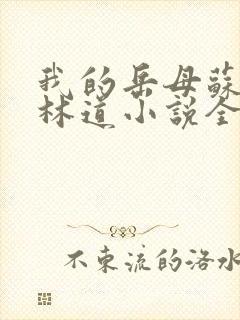 我的岳母蘇
林道小説全
不東流的洛水